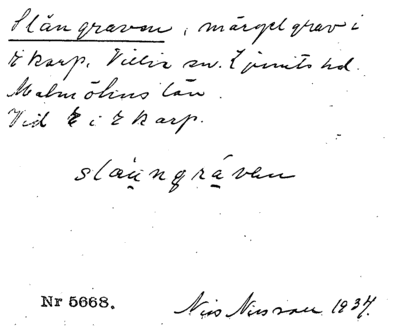 Slängraven, märgelgrav i
Ekarp, Villie sn. Ljunits hd.
Malmöhus län.
Vid E i Ekarp.
slängråven
Nr 5668.
Nils Nilsson 1934.